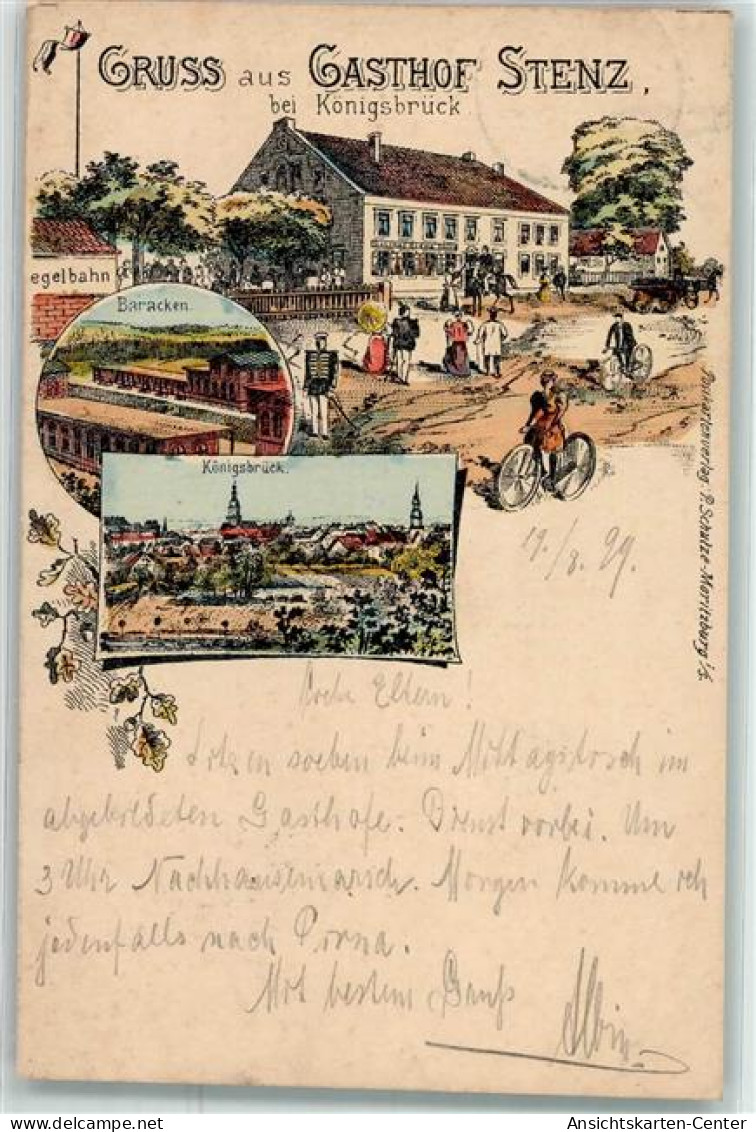 GRUSS aus GASTHOF STENZ,
bei Königsbrück
egelbahn
Baracken.
Königsbrück.
Postkartenverlag P. Schulze-Moritzburg i/S.
19./8. 99.
Eltern!
Sitzen soeben beim Mittagstisch im
abgebildeten Gasthofe. Dienst vorbei. Um
3 Uhr Nachhausemarsch. Morgen komme ich
jedenfalls nach Pirna.
Mit bestem Gruß
Albin.
delcampe.net
Ansichtskarten-Center